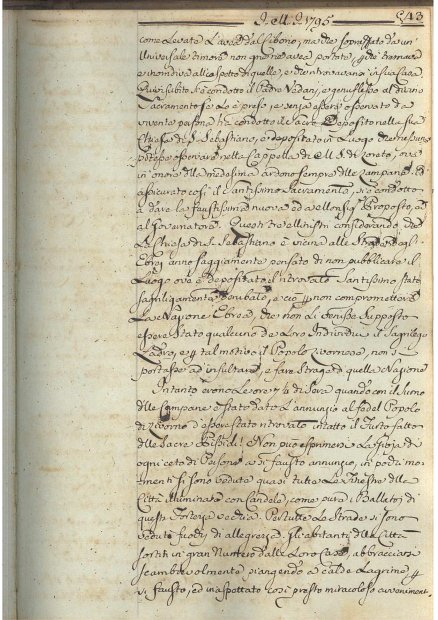 J. M. J. 1795 543
come Levata L'avea dal Ciborio, ma che sopraffato da un
Universale timore non gne ne avea portate, che tremava
e inorridiva all'aspetto di quelle, e che si trovavano in sua Casa
Quivi subito s'è condotto il Padre Vedani, e genuflesso al Divino
Sacramento se Lo è preso, e senza essere osservato da
vivente persona l'ha condotto il Sacro Deposito nella sua
Chiesa di S. Sebastiano, e depositato in Luogo che nessuno
potesse osservare nella Cappella di M. S. di Loreto, ove
in onore della medesima ardono sempre delle Lampane. Ed
assicurato così il Santissimo Sacramento, s'è condotto
a dare la faustissima nuova ed a Monsig. Proposto, ed
al Governatore. Questi tre Ministri considerando che
La Chiesa di S. Sebastiano è vicina alle Strade degli
Ebrei, anno saggiamente pensato di non pubblicare il
Luogo ove è depositato il ritrovato Santissimo stato
sagrilegamente rubato, e ciò p non compromettere
La Nazione Ebrea, che non Li venisse supposto
essere stato qualcuno de Loro Individui il sagrilego
Ladro, e p tal motivo il Popolo Livornese, non si
portasse ad insultare, e fare strage di quella Nazione
Intanto erono Le ore 7 1/4 di Sera quando con il suono
delle Campane è stato dato L'annunzio al fedel Popolo
di Livorno d'essere stato ritrovato intatto il Furto fatto
delle Sacre Pissidi! Non può esprimersi La gioja di
ogni ceto di Persone a sì fausto annunzio, in pochi mo=
menti si sono vedute quasi tutte Le Finestre della
Città illuminate con Candele, come pure i Ballatoj di
questa Fortezza Vecchia. Per tutte Le Strade si sono
vedute fuochi di allegrezza. Gli abitanti della Città
sortiti in gran Numero dalle Loro Case, abbracciarsi
scambievolmente piangendo a calde Lagrime p
sì fausto, ed inaspettato così presto miracoloso avveniment.